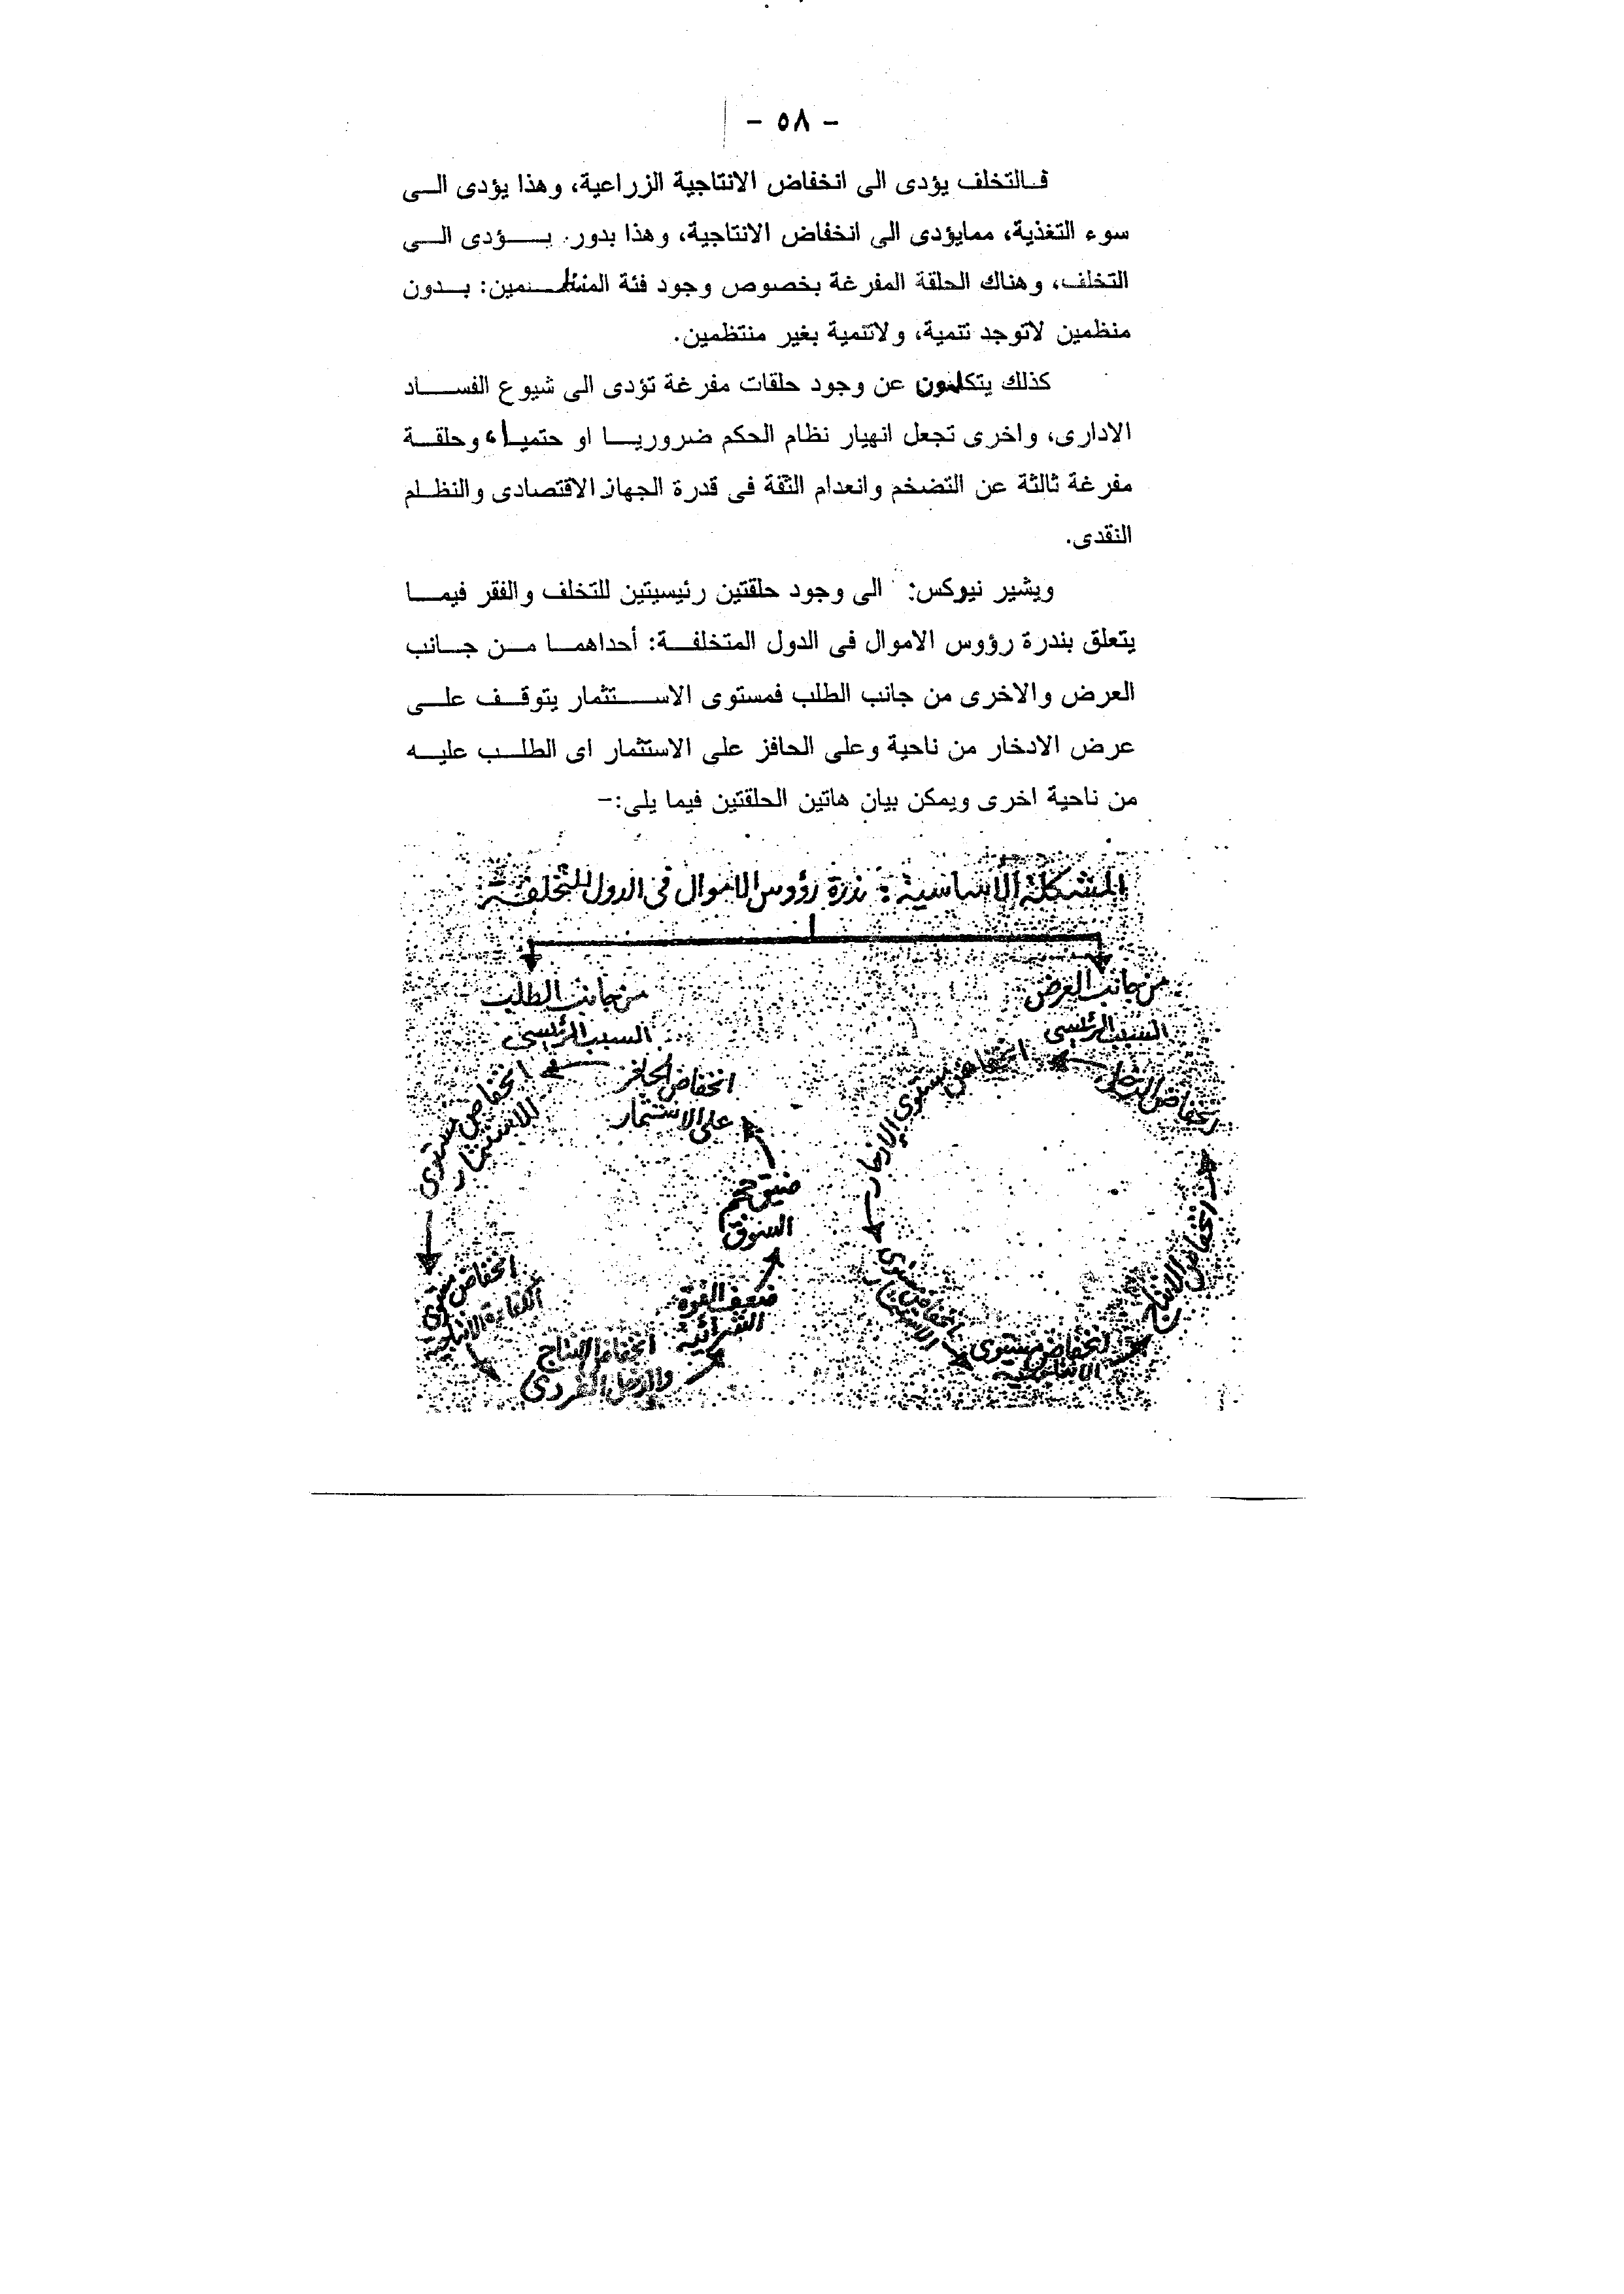 - ٥٨ -
فالتخلف يؤدى الى انخفاض الانتاجية الزراعية، وهذا يؤدى الى
سوء التغذية، ممايؤدى الى انخفاض الانتاجية، وهذا بدور يؤدى الى
التخلف، وهناك الحلقة المفرغة بخصوص وجود فئة المنظمين: بدون
منظمين لاتوجد تنمية، ولاتنمية بغير منتظمين.
كذلك يتكلمون عن وجود حلقات مفرغة تؤدى الى شيوع الفساد
الادارى، واخرى تجعل انهيار نظام الحكم ضروريا او حتميا، وحلقة
مفرغة ثالثة عن التضخم وانعدام الثقة فى قدرة الجهاز الاقتصادى والنظلم
النقدى.
ويشير نيوكس: الى وجود حلقتين رئيسيتين للتخلف والفقر فيما
يتعلق بندرة رؤوس الاموال فى الدول المتخلفة: أحداهما من جانب
العرض والاخرى من جانب الطلب فمستوى الاستثمار يتوقف على
عرض الادخار من ناحية وعلى الحافز على الاستثمار اى الطلب عليه
من ناحية اخرى ويمكن بيان هاتين الحلقتين فيما يلى:-
المشكلة الأساسية: ندرة رؤوس الاموال فى الدول المتخلفة
من جانب العرض
السبب الرئيسى
انخفاض الدخل
انخفاض مستوى الادخار
انخفاض مستوى
الاستثمار
انخفاض مستوى
الانتاجية
انخفاض الانتاج
من جانب الطلب
السبب الرئيسى
انخفاض الحافز
على الاستثمار
انخفاض مستوى
الاستثمار
انخفاض مستوى
الكفاءة الانتاجية
انخفاض الانتاج
والدخل الفردى
ضعف القوة
الشرائية
ضيق حجم
السوق